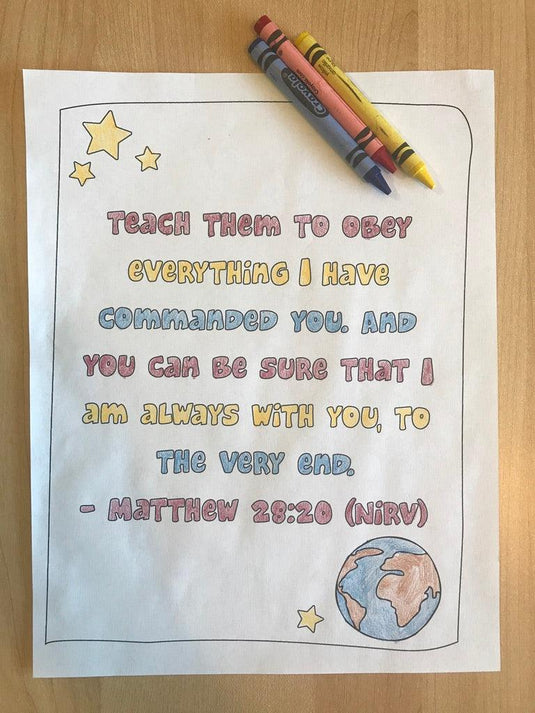 Crayola
TEACH THEM TO OBEY
EVERYTHING I HAVE
COMMANDED YOU. AND
YOU CAN BE SURE THAT I
AM ALWAYS WITH YOU, TO
THE VERY END.
- MATTHEW 28:20 (NIRV)